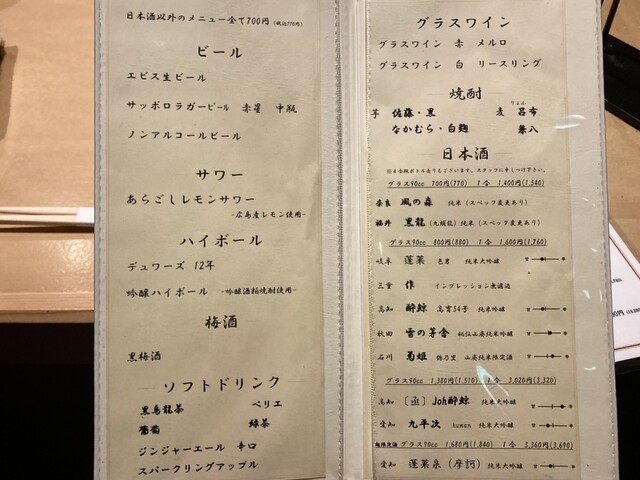 日本酒以外のメニュー全て700円(税込770円)
ビール
エビス生ビール
サッポロラガービール 赤星 中瓶
ノンアルコールビール
サワー
あらごしレモンサワー
-広島産レモン使用-
ハイボール
デュワーズ 12年
吟醸ハイボール -吟醸酒粕焼酎使用-
梅酒
黒梅酒
ソフトドリンク
黒烏龍茶 ペリエ
葡萄 緑茶
ジンジャーエール 辛口
スパークリングアップル
グラスワイン
グラスワイン 赤 メルロ
グラスワイン 白 リースリング
焼酎
りょふ
芋 佐藤・黒 麦 呂布
なかむら・白麹 兼八
日本酒
※4合瓶ボトル売りもございます。スタッフに申しつけ下さい。
グラス90cc 700円(770) 1合 1,400円(1,540)
奈良 風の森 純米(スペック変更あり)
福井 黒龍(九頭龍) 純米(スペック変更あり)
グラス90cc 800円(880) 1合 1,600円(1,760)
岐阜 蓬莱 色男 純米大吟醸 甘 辛
三重 作 インプレッション無濾過
高知 酔鯨 高育54号 純米吟醸 甘 辛
秋田 雪の茅舎 秘伝山廃純米吟醸 甘 辛
石川 菊姫 鶴乃里 山廃純米限定酒 甘 辛
グラス90cc 1,380円(1,510) 1合 3,020円(3,320)
高知 [函]Joh酔鯨 純米大吟醸 甘 辛
愛知 九平次 human 純米大吟醸 甘 辛
極限定酒 グラス90cc 1,680円(1,840) 1合 3,360円(3,690)
愛知 蓬莱泉(摩訶) 純米大吟醸 甘 辛